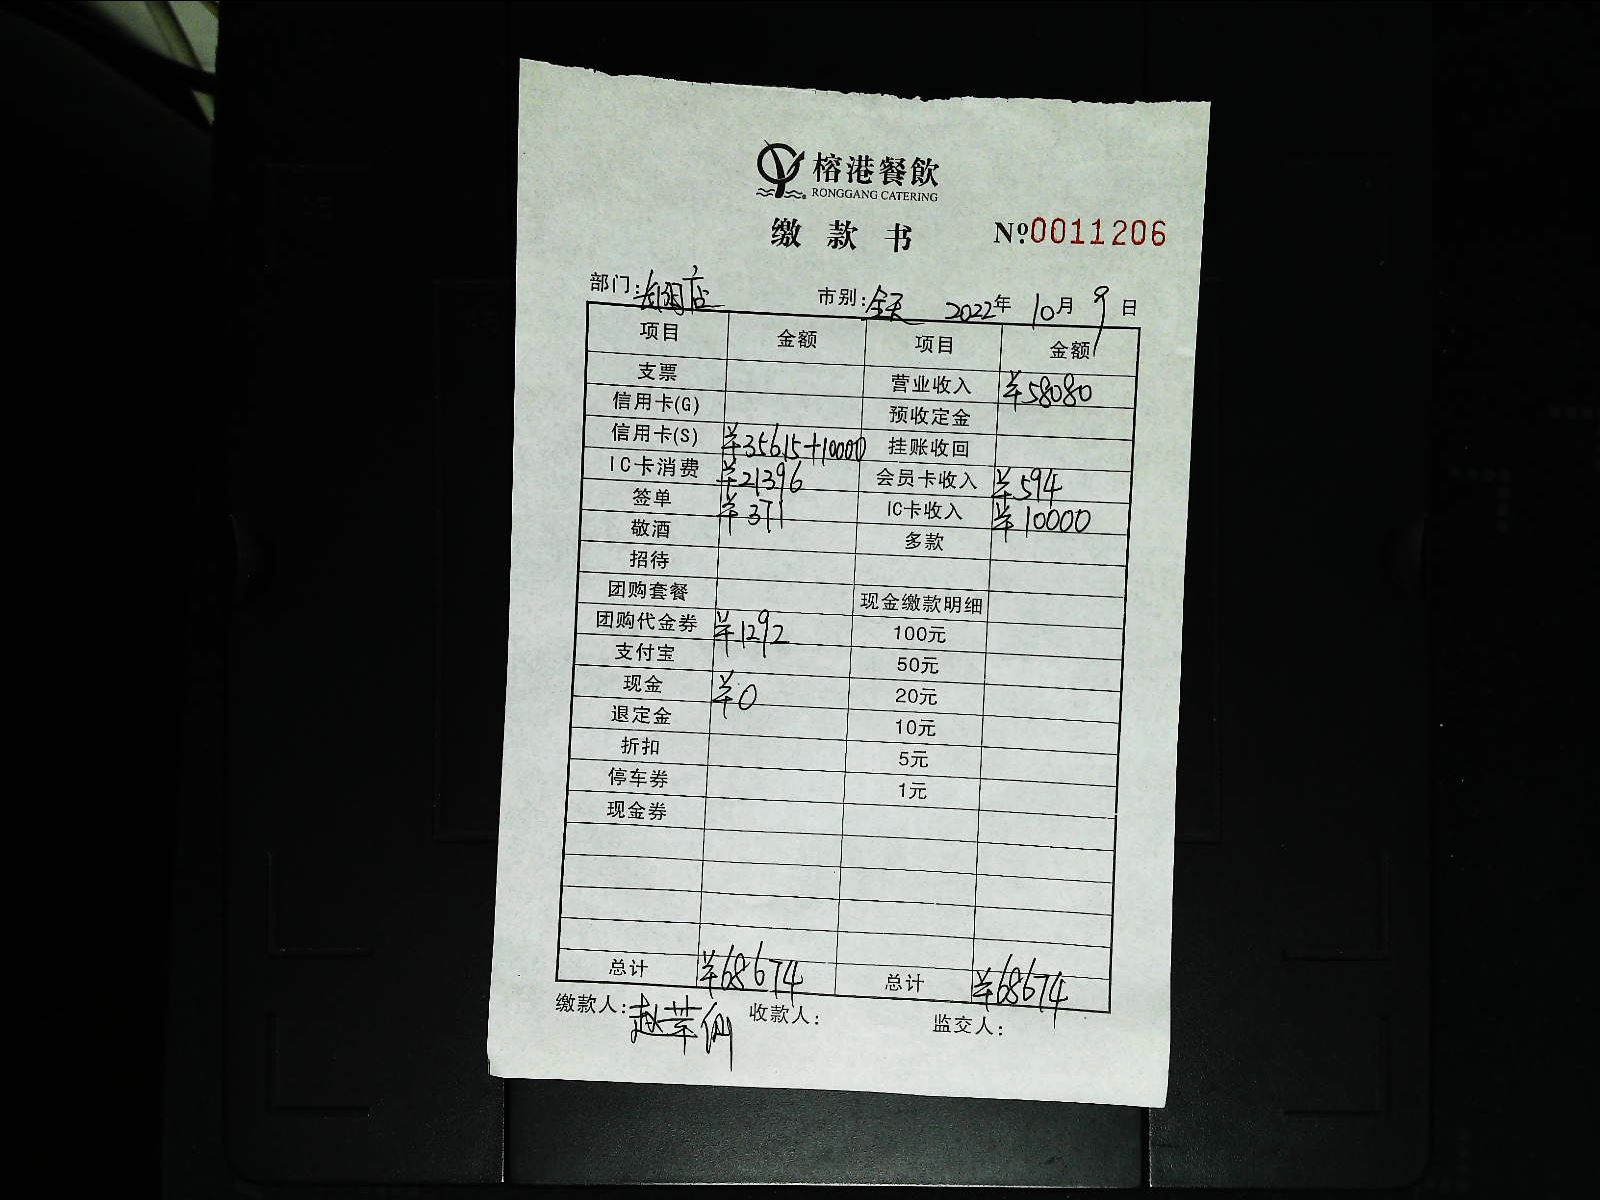 榕港餐飲
RONGGANG CATERING
缴款书 Nº0011206
部门: 店 市别: 全天 2022年 10月 9日
项目 金额 项目 金额
支票 营业收入 ¥58080
信用卡(G) 预收定金
信用卡(S) ¥35615+10000 挂账收回
IC卡消费 ¥21396 会员卡收入 ¥594
签单 ¥371 IC卡收入 ¥10000
敬酒 多款
招待
团购套餐 现金缴款明细
团购代金券 ¥1292 100元
支付宝 50元
现金 ¥0 20元
退定金 10元
折扣 5元
停车券 1元
现金券
总计 ¥68674 总计 ¥68674
缴款人: 赵 收款人: 监交人: